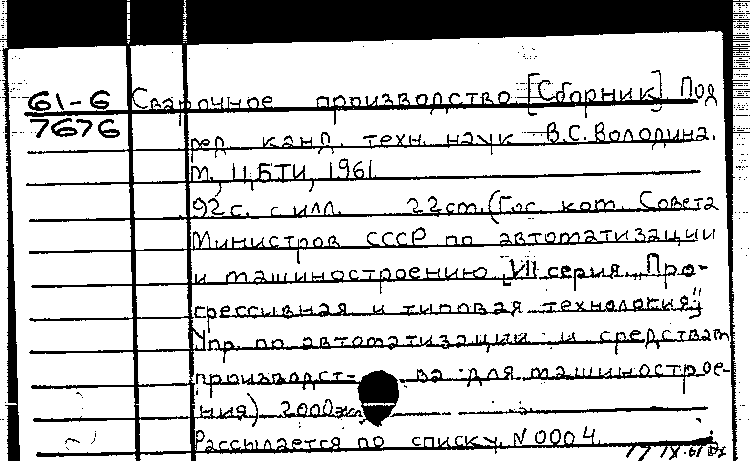 61-6
7676
Сварочное производство. [Сборник] Под
ред. канд. техн. наук В.С. Володина.
М., ЦБТИ, 1961
92с. с илл. 22см. (Гос. ком. Совета
Министров СССР по автоматизации
и машиностроению. VII серия „Про-
грессивная и типовая технология".
Упр. по автоматизации и средствам
производст- ва для машинострое-
ния) 2000экз
Рассылается по списку. N 0004